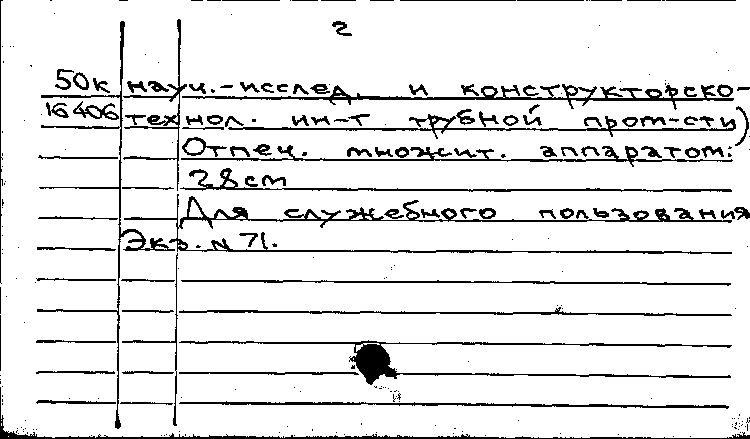 2
50к науч.-исслед. и конструкторско-
16406 технол. ин-т трубной пром-сти)
Отпеч. множит. аппаратом.
28см
Для служебного пользования
Экз. N 71.